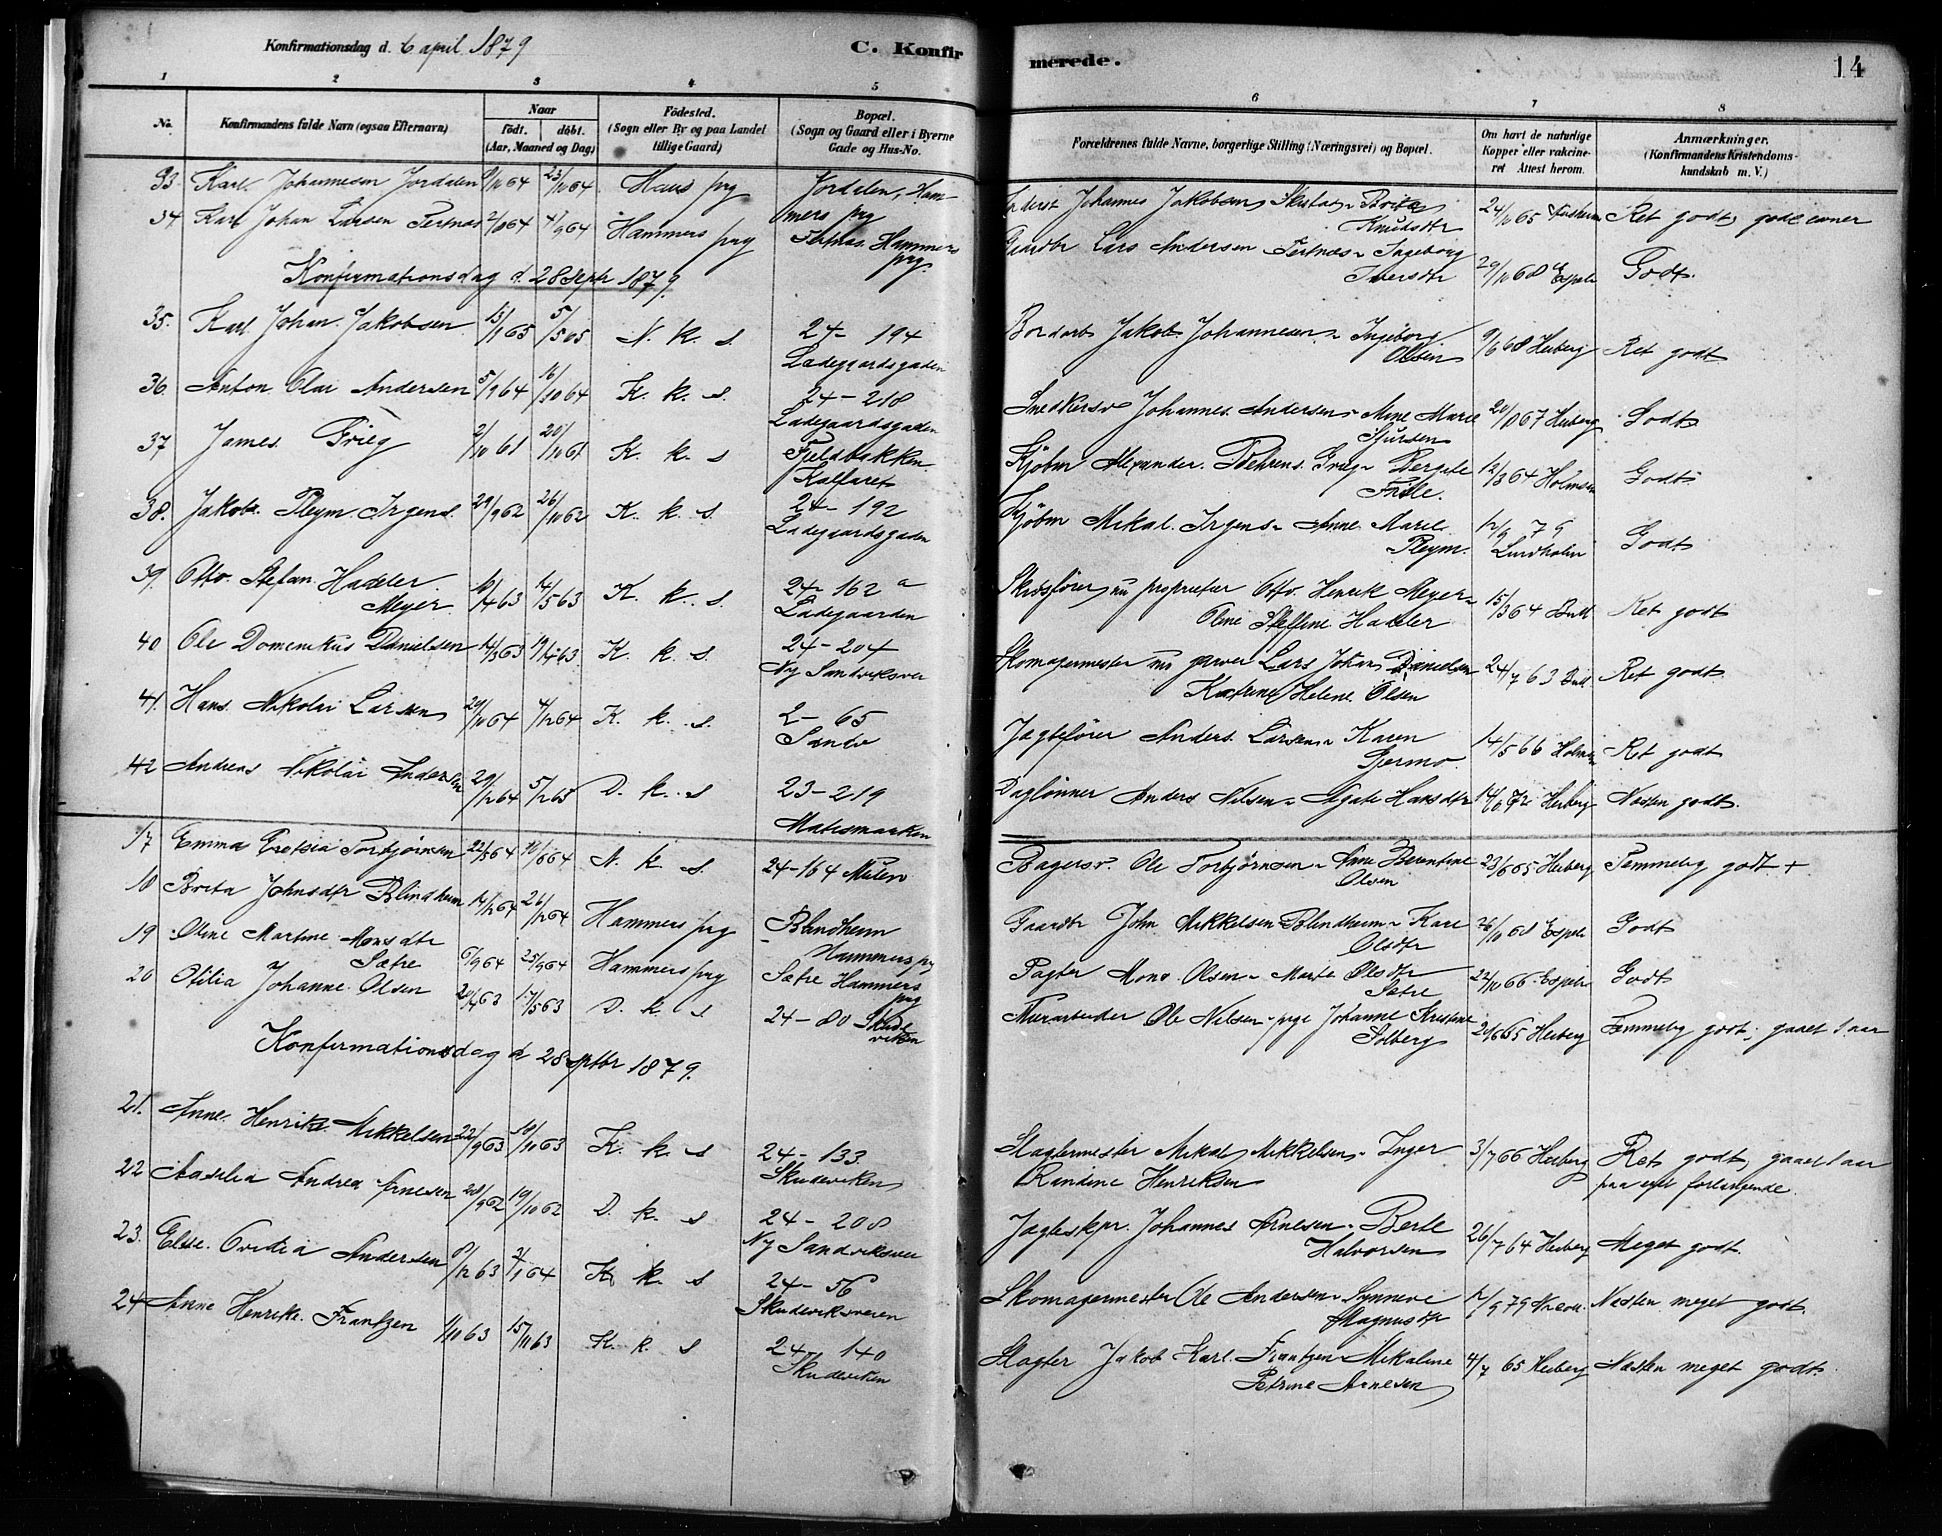 Konfirmationsdag d. 6 april 1879
C. Konfirmerede.
14
1 2 3 4 5 6 7 8
No. Konfirmandens fulde Navn (ogsaa Efternavn) Naar født. døbt. (Aar, Maaned og Dag) Födested. (Sogn eller By og paa Landet tillige Gaard) Bopæl. (Sogn og Gaard eller i Byerne Gade og Hus-No. Forældrenes fulde Navne, borgerlige Stilling (Næringsvei) og Bopæl. Om havt de naturlige Kopper eller vakcineret Attest herom. Anmærkninger. (Konfirmandens Kristendomskundskab m. V.)
33. Karl Johannesen Jordalen 9/10 64 23/10 64 Haus prg Jordalen, Hammers prg Johannes Jakobsen Brita Knudsdtr 24/10 65 Ret godt, gode evner
34. Karl Johan Larsen Tertnæs 2/8 64 4/9 64 Hammers prg Tertnæs Hammers prg. Gaardbr Lars Andersen Tertnæs Ingeborg Iversdtr 29/10 68 Espeln Godt.
Konfirmationsdag d. 28 Septr 1879.
35. Karl Johan Jakobsen 15/1 65 5/5 65 N. k. s. 24 – 194 Ladegaardsgaden Bordarb Jakob Johannesen Ingeborg Olsen 9/6 68 Heiberg Ret godt
36. Anton Olai Andersen 5/9 64 16/10 64 K. k. s. 24 – 218 Ladegaardsgaden Snedkersv Johannes Andersen Anne Marie Sjursen 20/10 67 Heiberg Godt
37 James Grieg 2/10 61 20/11 61 K. k. s Fjeldbakken Kalfaret Kjøbm Alexander Behrens Grieg Bergete Friele. 12/3 64 Holmsen Godt
38. Jakob Pleym Irgens. 29/9 62 26/10 62 K. k. s. 24 – 192 Ladegaardsgaden Kjøbm Mikal Irgens Anne Marie Pleym. 12/9 79 Lindholm Godt
39. Otto Stefan Hadler Meyer 16/4 63 14/5 63 K. k. s. 24 – 162 a Ladegaarden Skibsfører nu proprietær Otto Henrik Meyer Oline Steffine Hadler 15/3 64 Bull Ret godt
40 Ole Domenikus Danielsen 14/3 63 19/4 63 K. k. s. 24 – 204 Ny Sandviksvei Skomagermester Lars Johan Danielsen Katrine Helene Olsen 24/7 63 Bull Ret godt
41. Hans Nikolai Larsen 29/10 64 4/12 64 K. k. s. 2 – 65 Sandv Jagtefører Anders Larsen Karen Gjermo 14/5 66 Holmsen Ret godt
42 Andreas Nikolai Andersen 29/12 64 5/2 65 D. k. s 23 – 219 Malesmarken Daglønner Anders Nilsen Agate Hansdtr 14/6 72 Heiberg Næsten godt.
17 Emma Gretsia Torbjørnsen 22/5 64 19/6 64 N. k. s. 24 – 164 Mulen Bagersv. Ole Torbjørnsen Anne Berentine Olsen 23/6 65 Heiberg Temmelig godt +
18 Brita Johnsdtr Blindheim 14/12 64 26/12 64 Hammers prg Blindheim Hammers prg Gaardbr John Mikkelsen Blindheim Kari Olsdtr 26/10 68 Espeln Godt
19 Oline Martine Monsdtr Sætre 6/9 64 25/9 64 Hammers prg Sætre Hammers prg Pagter Mons Olsen Marte Olsdtr Sætre 22/10 66 Espeln Godt
20 Otilia Johanne Olsen 20/4 63 17/5 63 D. k. s 24 – 80 Skudeviken Murarbeider Ole Nilsen Johanne Kristine Solberg 20/6 65 Heiberg Temmelig godt, gaaet 1 aar
Konfirmationsdag d 28 septbr 1879.
21. Anne Henrike Mikkelsen 22/9 63 19/10 63 K. k. s 24 – 133 Skudeviken Slagtermester Mikal Mikkelsen Inger Randine Henriksen 3/7 66 Heiberg Ret godt, gaaet 1 aar paa eget forlangende.
22 Aaselia Andrea Arnesen 28/9 62 19/10 62 D. k. s 24 – 208 Ny Sandviksvei Jagteskpr. Johannes Arnesen Berte Halvorsen 26/7 64 Heiberg Meget godt
23. Elise Ovidia Andersen 8/12 63 3/1 64 K k s 24 – 56 Skudeviksveien Skomagermester Ole Andersen Synneve Magnusdtr 12/9 79 Næsten meget godt
24 Anne Henrike Frantzen 1/10 63 15/11 63 K. k. s 24 – 140 Skudeviken Slagter Jakob Karl Frantzen Mikaline Petrine Arnesen 4/7 65 Heiberg Næsten meget godt.